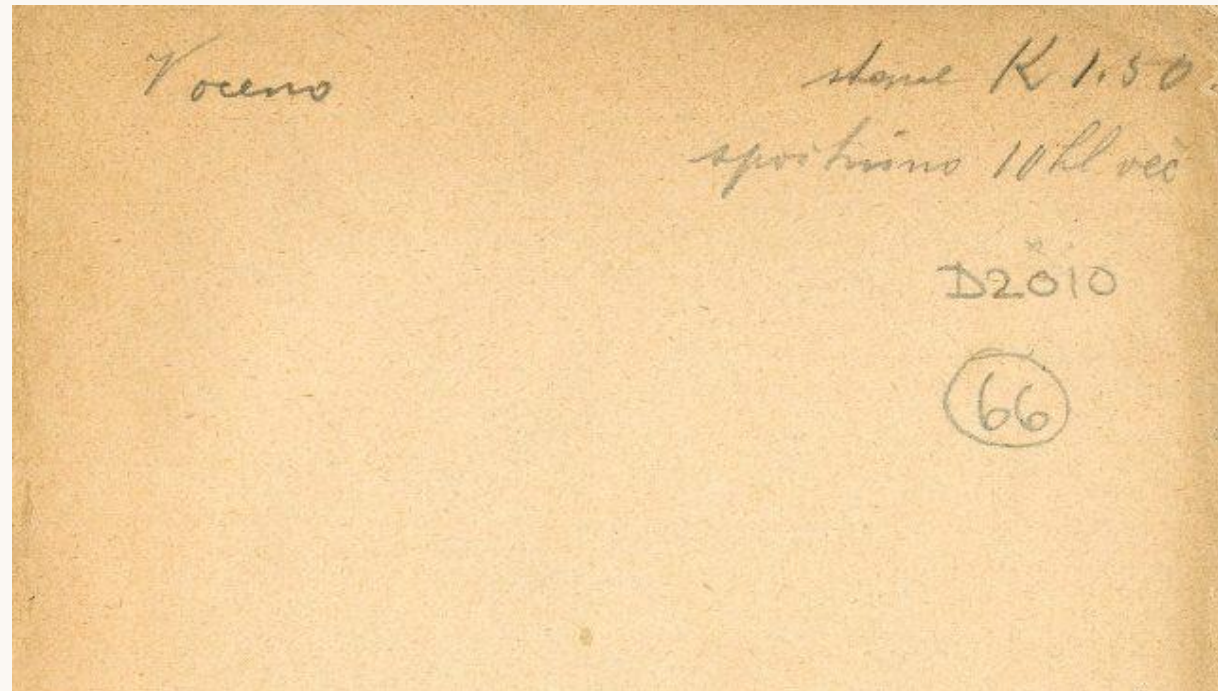 V oceno
stane K 1.50.
s poštnino 10 hl več
D2010
66